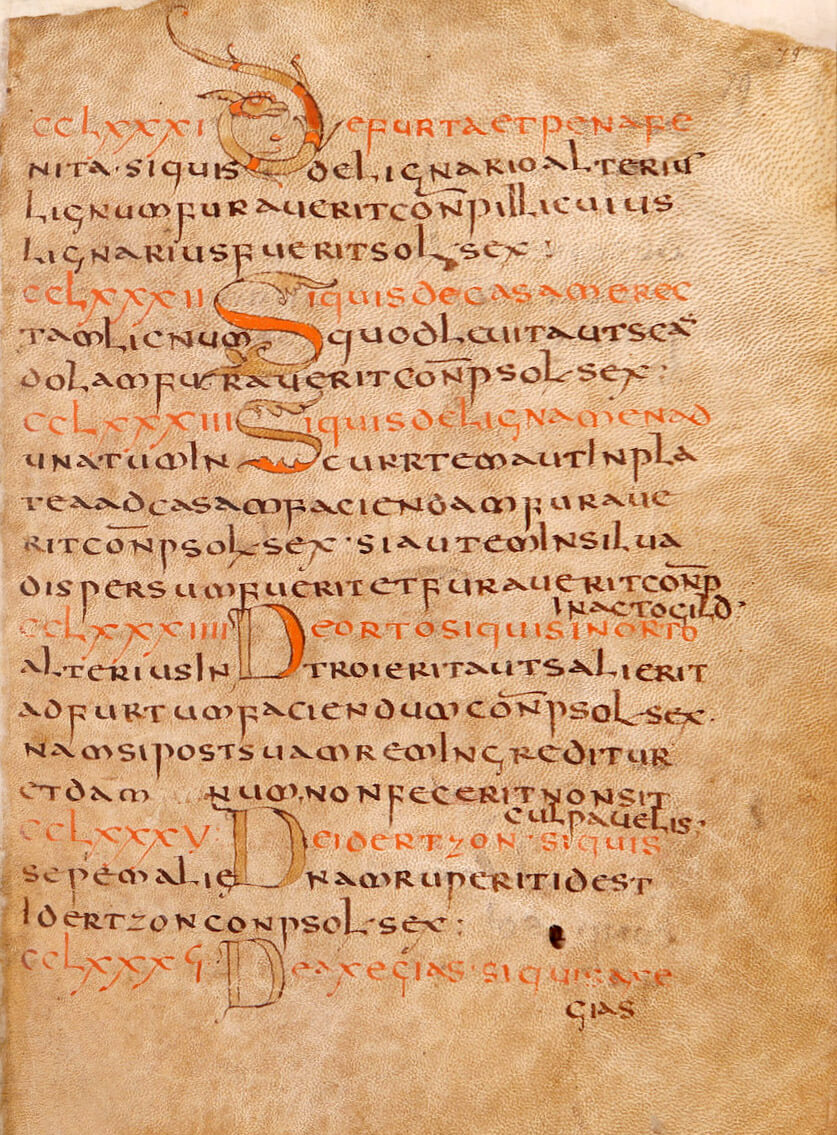 CCLXXXI DEFURTAETPENAFE
NITA·SIQUIS DELIGNARIOALTERIUS
LIGNUMFURAUERITCOÑPILLICUIUS
LIGNARIUSFUERITSOL·SEX:
CCLXXXII SIQUISDECASAMEREC
TAMLIGNUM QUODLIUITAUTSCAN
DOLAMFURAUERITCOÑPSOL·SEX:
CCLXXXIII SIQUISDELIGNAMENAD
UNATUMIN CURRTEMAUTINPLA
TEAADCASAMFACIENDAMFURAUE
RITCOÑPSOL·SEX·SIAUTEMINSILUA
DISPERSUMFUERITETFURAUERITCOÑP
INACTOGILD·
CCLXXXIIII DEORTOSIQUISINORTO
ALTERIUSIN TROIERITAUTSALIERIT
ADFURTUMFACIENDUMCOÑPSOL·SEX·
NAMSIPOSTSUAMREMINGREDITUR
ETDAM NUM·NONFECERITNONSIT
CULPAUELIS·
CCLXXXV· DEIDERTZON·SIQUIS
SEPEMALIE NAMRUPERITIDEST
IDERTZONCONPSOL·SEX:
CCLXXXϛ DEAXEGIAS·SIQUISAXE
GIAS